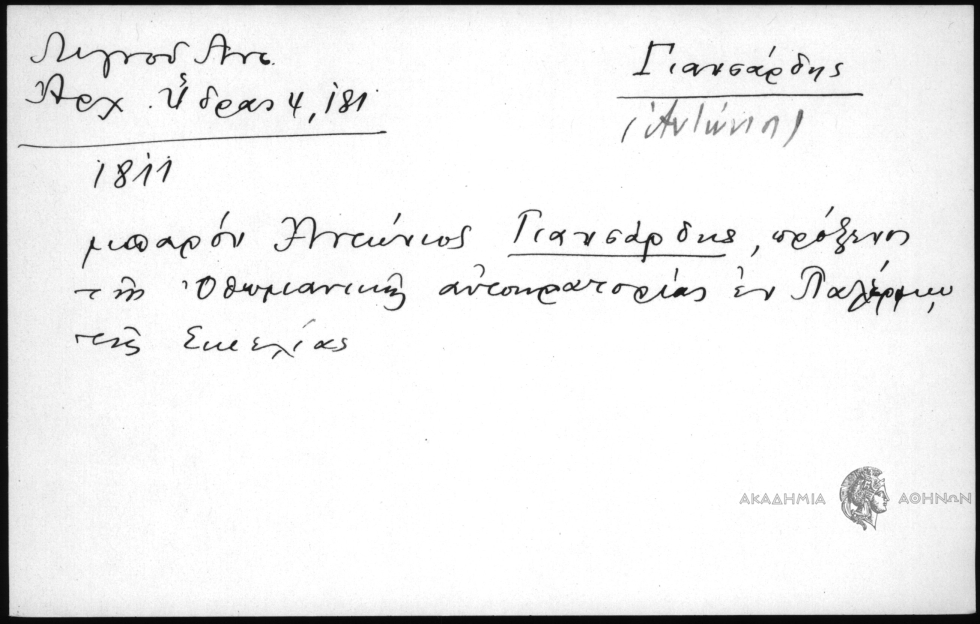 Λιγνοῦ Ἀντ.
Ἀρχ. Ὕδρας 4, 181
Γιανσάρδης
(Ἀντώνιος)
1811
μπαρόν Ἀντώνιος Γιανσάρδης, πρόξενος
τῆς Ὀθωμανικῆς αὐτοκρατορίας ἐν Παλέρμῳ,
τῆς Σικελίας
ΑΚΑΔΗΜΙΑ ΑΘΗΝΩΝ